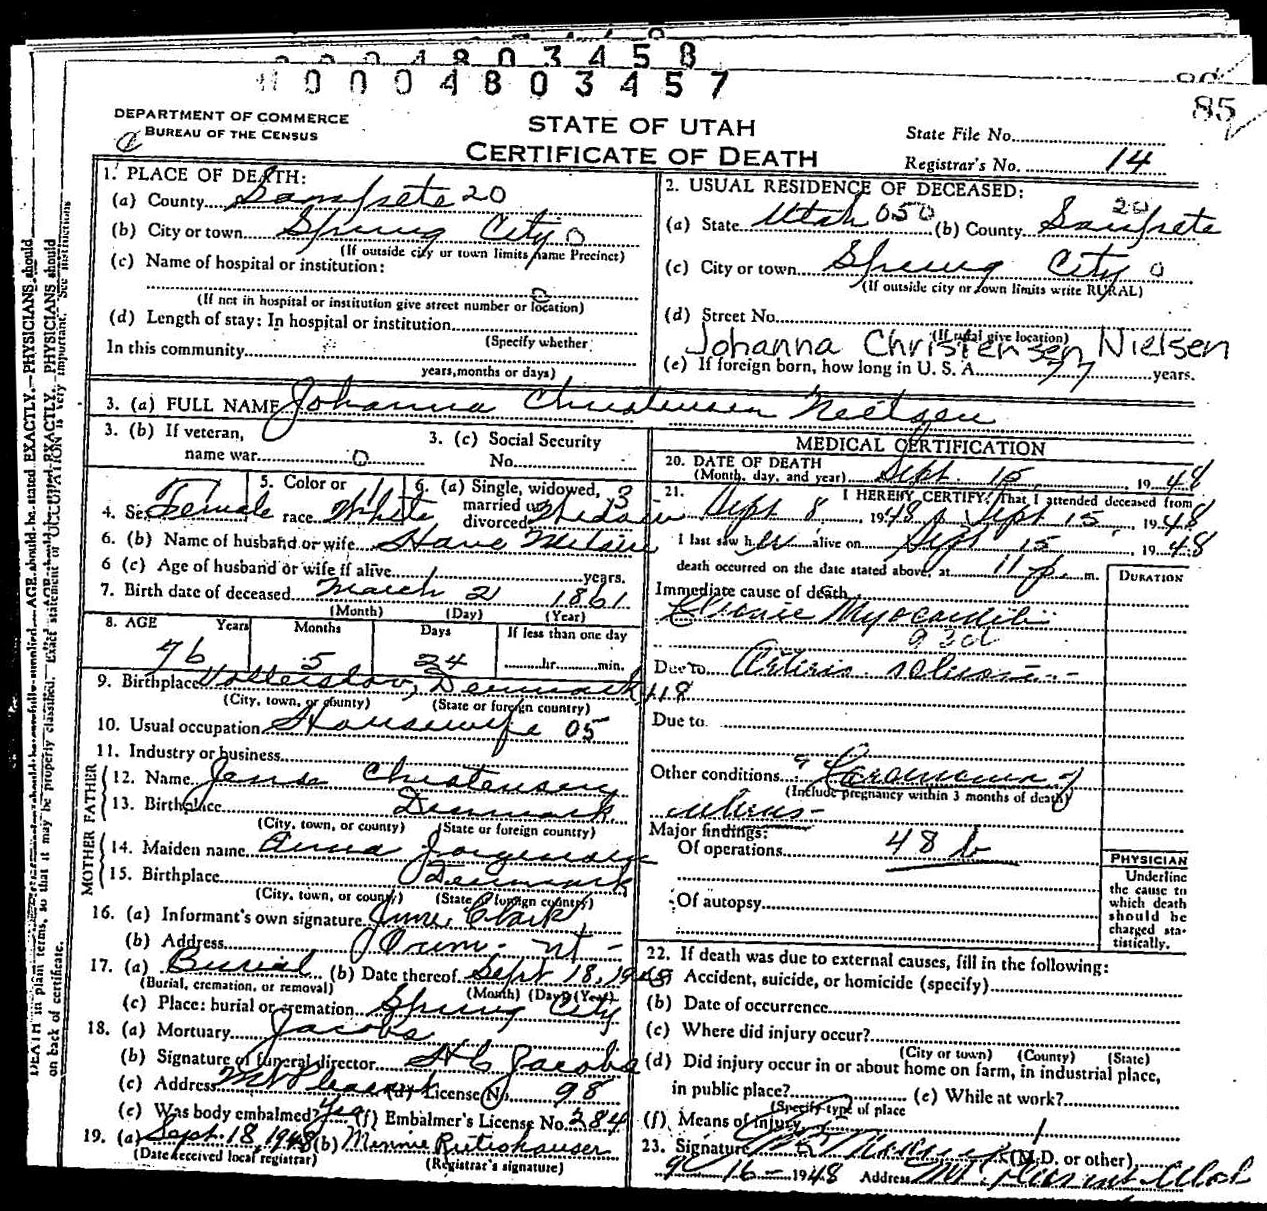 0004803458
0004803457
85
DEPARTMENT OF COMMERCE
BUREAU OF THE CENSUS
STATE OF UTAH
CERTIFICATE OF DEATH
State File No.
Registrar's No. 14
1. PLACE OF DEATH:
(a) County Sanpete 20
(b) City or town Spring City 0
(If outside city or town limits name Precinct)
(c) Name of hospital or institution:
0
(If not in hospital or institution give street number or location)
(d) Length of stay: In hospital or institution
(Specify whether
In this community
years, months or days)
2. USUAL RESIDENCE OF DECEASED:
(a) State Utah 050 (b) County Sanpete 20
(c) City or town Spring City 0
(If outside city or town limits write RURAL)
(d) Street No.
(If rural give location)
Johanna Christensen Nielsen
(e) If foreign born, how long in U. S. A. 77 years.
3. (a) FULL NAME Johanna Christensen Nielsen
3. (b) If veteran, name war 0
3. (c) Social Security No.
4. Sex Female
5. Color or race White 1
6. (a) Single, widowed, married or divorced Widow 3
6. (b) Name of husband or wife
6 (c) Age of husband or wife if alive years.
7. Birth date of deceased March 21 1861
(Month) (Day) (Year)
8. AGE Years Months Days If less than one day
76 5 24 hr. min.
9. Birthplace Denmark 118
(City, town, or county) (State or foreign country)
10. Usual occupation Housewife 05
11. Industry or business
FATHER
12. Name Jens Christensen
13. Birthplace Denmark
(City, town, or county) (State or foreign country)
MOTHER
14. Maiden name Anna Jorgensen
15. Birthplace Denmark
(City, town, or county) (State or foreign country)
16. (a) Informant's own signature Clark
(b) Address Orem - Ut -
17. (a) Burial (b) Date thereof Sept 18, 1948
(Burial, cremation, or removal) (Month) (Day) (Year)
(c) Place: burial or cremation Spring City
18. (a) Mortuary Jacobs
(b) Signature of funeral director H C Jacobs
(c) Address Mt Pleasant (d) License No. 98
(e) Was body embalmed? Yes (f) Embalmer's License No. 284
19. (a) Sept. 18, 1948 (b) Minnie
(Date received local registrar) (Registrar's signature)
MEDICAL CERTIFICATION
20. DATE OF DEATH
(Month, day, and year) Sept. 15, 1948
21. I HEREBY CERTIFY, That I attended deceased from
Sept 8, 1948 to Sept 15, 1948
I last saw her alive on Sept 15, 1948
death occurred on the date stated above, at 11 p. m.
DURATION
Immediate cause of death
Chronic Myocarditis
93d
Due to Arterio sclerosis
Due to
Other conditions Carcinoma of
(Include pregnancy within 3 months of death)
uterus -
Major findings:
Of operations 48 b
Of autopsy
PHYSICIAN
Underline
the cause to
which death
should be
charged sta-
tistically.
22. If death was due to external causes, fill in the following:
(a) Accident, suicide, or homicide (specify)
(b) Date of occurrence
(c) Where did injury occur?
(City or town) (County) (State)
(d) Did injury occur in or about home on farm, in industrial place,
in public place? (e) While at work?
(Specify type of place
(f) Means of injury
23. Signature (M.D. or other)
9-16-1948 Address Mt. Pleasant Utah